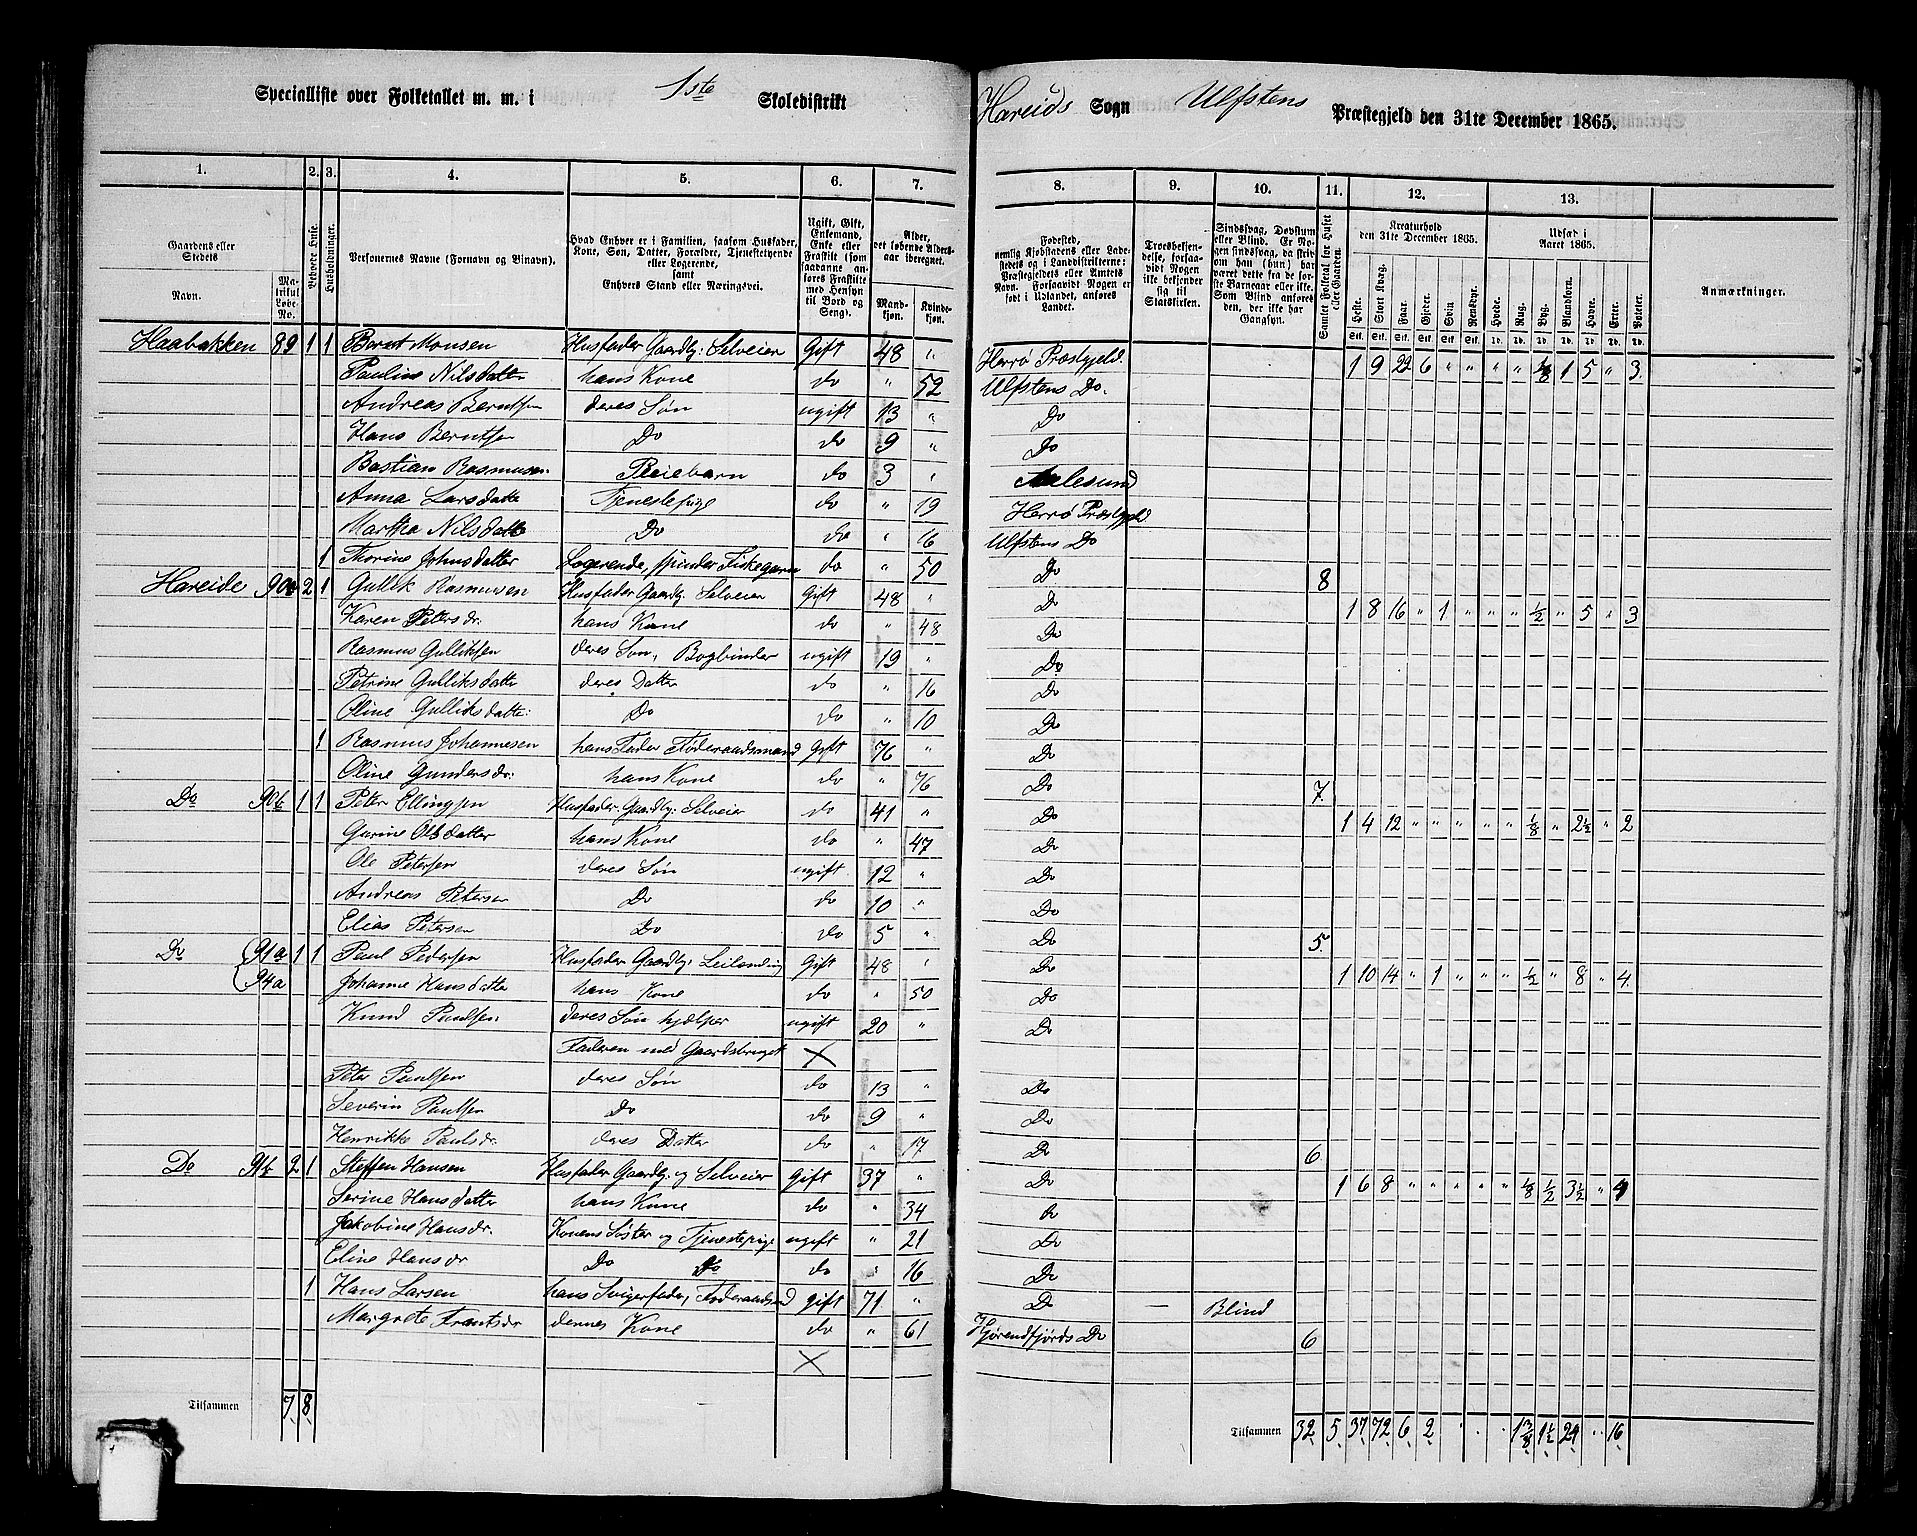 Specialliste over Folketallet m. m. i 1ste Skoledistrikt Hareids Sogn Ulfstens Præstegjeld den 31te December 1865.
1. 2. 3. 4. 5. 6. 7. 8. 9. 10. 11. 12. 13.
Gaardens eller Stedets Navn. Matrikul Løbe-No. Beboede Huse. Husholdninger. Personernes Navne (Fornavn og Tilnavn). Hvad Enhver er i Familien, saasom Husfader, Kone, Søn, Datter, Forældre, Tjenestetyende eller Logerende, samt Enhvers Stand eller Næringsvei. Ugift, Gift, Enkemand, Enke eller Fraskilt (som saadanne anføres Fraskilte med Hensyn til Bord og Seng). Alder, det løbende Alders-aar iberegnet. Mandkjøn. Kvindekjøn.
Fødested, nemlig Kjøbstadens eller Ladestedets og i Landdistrikterne: Præstegjeldets eller Amtets Navn. Forsaavidt Nogen er født i Udlandet, anføres Landet. Troesbekjendelse, forsaavidt Nogen ikke bekjender sig til Statskirken. Sindssvag, Døvstum eller Blind. Er Nogen sindssvag, da skrives om han (hun) har været dette fra de første Barneaar eller ikke. Som Blind anføres den, der ikke har Gangsyn. Samlet Folketal for Huset eller Gaarden. Kreaturhold den 31te December 1865. Heste. Stort Kvæg. Faar. Gjeter. Svin. Rensdyr. Udsæd i Aaret 1865. Hvede. Rug. Byg. Blandkorn. Havre. Erter. Poteter. Anmærkninger.
Haabakken 89 1 1 Bernt Monsen Husfader Gaardbr: Selveier Gift 48 " Herrø Præstgjeld 1 9 22 6 " " " " 1/8 1 5 " 3
Pauline Nilsdatter hans Kone do " 52 Ulfstens Do.
Andreas Berntsen deres Søn ugift 13 " Do
Hans Berntsen Do do 9 " Do
Bastian Rasmusen Pleiebarn do 3 " Aalesund
Anna Larsdatter Tjenestepige do " 19 Herrø Præstgjeld
Martha Nilsdatter Do do " 16 Ulfstens Do
1 Thorine Johnsdatter Logerende, spinder Fiskegarn do " 50 Do 8
Hareide 90a 2 1 Gullik Rasmusen Husfader Gaardbr: Selveier Gift 48 " Do 1 8 16 " 1 " " " 1/2 " 5 " 3
Karen Petersdr. hans Kone do " 48 Do
Rasmus Gulliksen deres Søn, Bogbinder ugift 19 " Do
Petrine Gulliksdatter deres Datter do " 16 Do
Oline Gulliksdatter: Do do " 10 Do
1 Rasmus Johannesen hans Fader Føderaadsmand Gift 76 " Do
Oline Gundersdr: hans Kone do " 76 Do 7
Do 90b 1 1 Peter Ellingsen Husfader: Gaardbr: Selveier do 41 " Do 1 4 12 " " " " " 1/8 " 2½ " 2
Gurine Olsdatter hans Kone do " 47 Do
Ole Petersen deres Søn ugift 12 " Do
Andreas Petersen Do do 10 " Do
Elias Petersen Do do 5 " Do 5.
Do 91a 1 1 Paul Pedersen Husfader Gaardbr: Leilending Gift 48 " Do 1 10 14 " 1 " " " 1/2 " 8 " 4
94a Johanne Hansdatter hans Kone do " 50 Do
Knud Paulsen deres Søn hjelper ugift 20 " Do
Faderen med Gaardsbruget X
Peter Paulsen deres Søn do 13 " Do
Severin Paulsen Do do 9 " Do
Henrikke Paulsdr. deres Datter do " 17 Do 6
Do 91b 2 1 Steffen Hansen Husfader Gaardbr. og Selveier gift 37 " Do 1 6 8 " " " " " 1/8 1/2 3½ " 4
Serine Hansdatter hans Kone do " 34 Do
Jakobine Hansdr. Konens Søster og Tjenestepige ugift " 21 Do
Eline Hansdr Do Do do " 16 Do
1 Hans Larsen hans Svigerfader, Føderaadsmd gift 71 " Do — Blind
Margrete Frantsdr dennes Kone do " 61 Hjørendfjords Do 6
X
Tilsammen 7. 8. Tilsammen 32. 5. 37. 72. 6. 2. " " " 1 3/8 1½ 24 " 16